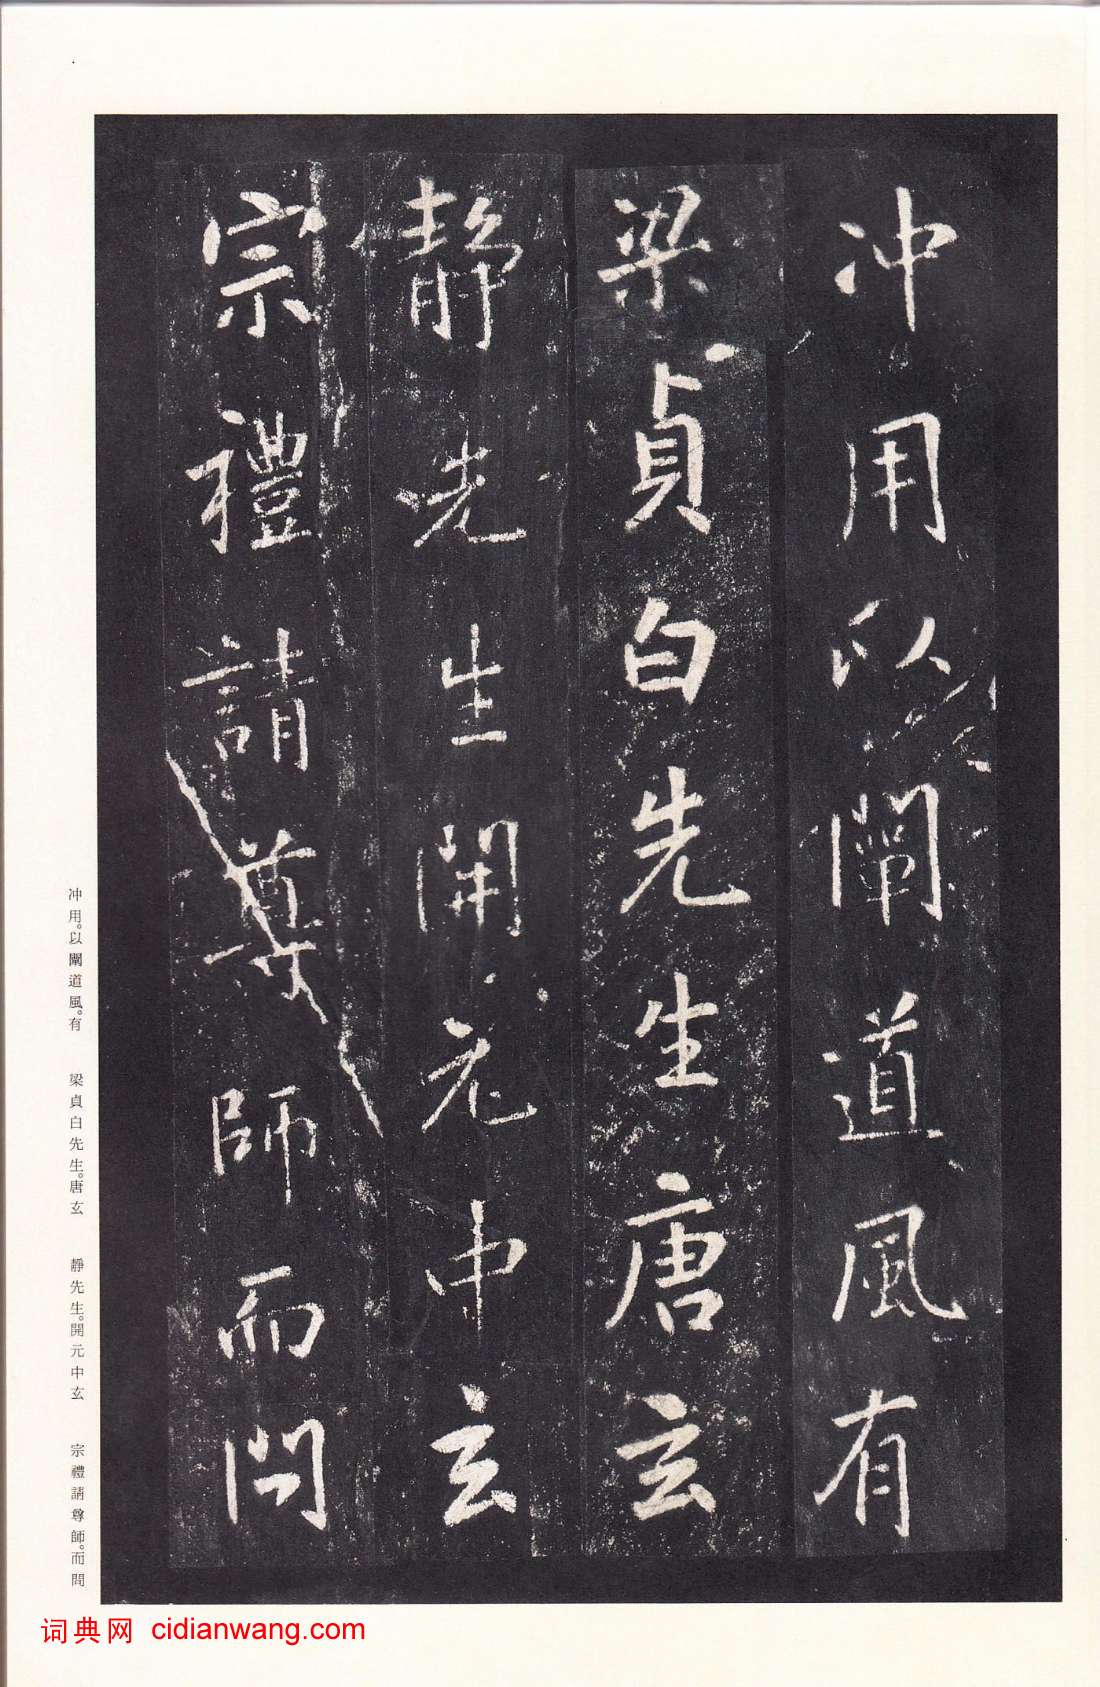 冲用以闡道風有
梁貞白先生唐玄
靜先生開元中玄
宗禮請尊師而問
冲用。以闡道風。有 梁貞白先生。唐玄 靜先生。開元中玄 宗禮請尊師。而問
词典网 cidianwang.com